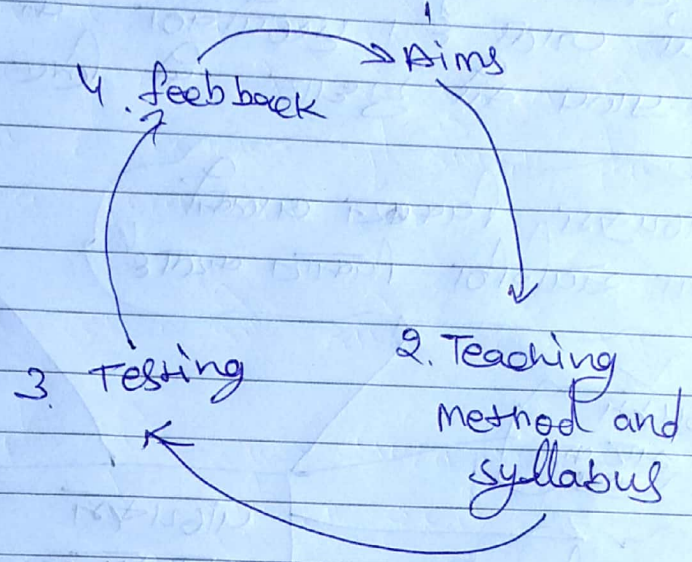 1
Aims
2. Teaching
method and
syllabus
3. Testing
4. feebback